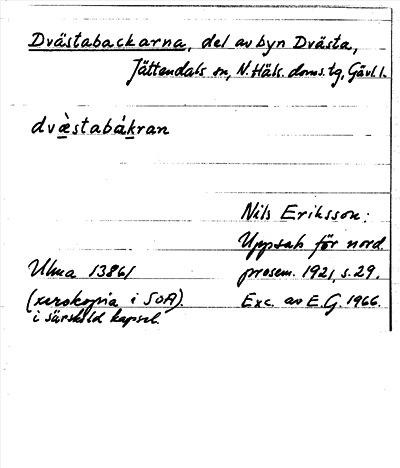 Dvästabackarna, del av byn Dvästa,
Jättendals sn, N. Häls. doms. tg, Gävl. l.
dvæ̀stabákran
Nils Eriksson:
Uppsats för nord.
Ulma 13861 prosem. 1921, s. 29.
(xerokopia i SOA). Exc. av E. G. 1966.
i särskild kapsel.